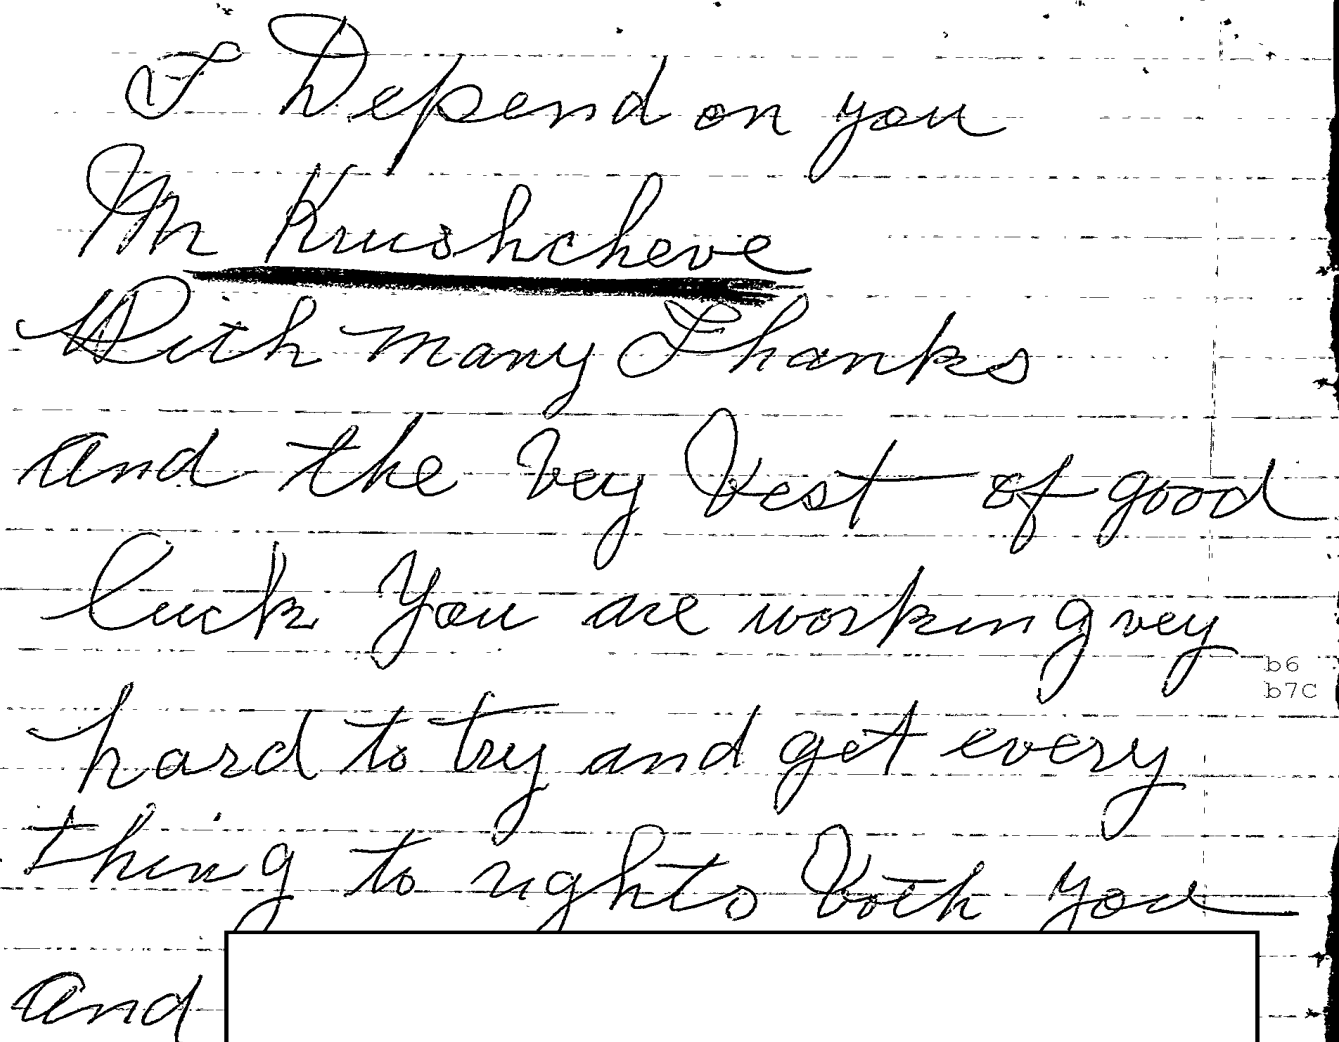 I Depend on you
Mr Krushcheve
With many Thanks
and the vey Best of good
luck You are working vey
hard to try and get every
thing to rights Both you
and
b6
b7C